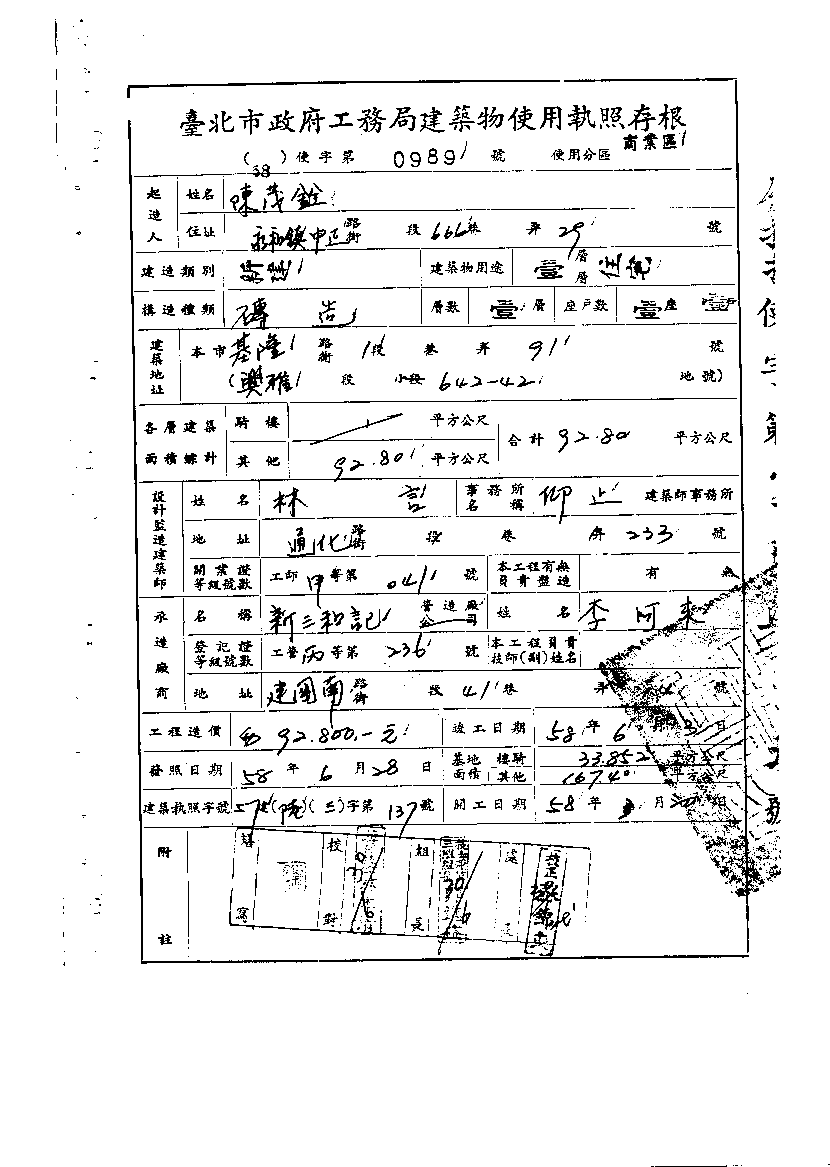 臺北市政府工務局建築物使用執照存根
商業區
(58)使字第 0989 號 使用分區
起造人 姓名 陳茂銓
住址 永和鎮中正 路街 段 666 巷 弄 29 號
建造類別 新建 建築物用途 壹層 層 住宅
構造種類 磚造 層數 壹層 座戶數 壹座 壹戶
建築地址 本市 基隆 路街 1段 巷 弄 91 號
(興雅 段 小段 642-42 地號)
各層建築面積總計 騎樓 平方公尺 合計 92.80 平方公尺
其他 92.80 平方公尺
設計監造建築師 姓名 林 事務所名稱 仰止 建築師事務所
地址 通化 路街 段 巷 弄 233 號
開業證等級號數 工師 甲等第 041 號 本工程有無負責監造 有 無
承造廠商 名稱 新三和記 營造廠公司 姓名 李阿來
登記證等級號數 工營 丙等第 236 號 本工程負責技師(副)姓名
地址 建國南 路街 段 41巷 弄 4 號
工程造價 92.800.-元 竣工日期 58年 6月 日
發照日期 58年 6月 28日 基地面積 騎樓 33.852 平方公尺
其他 平方公尺
建築執照字號 工 ( )( )字第 137號 開工日期 58年 月 日
附註
繕寫 校對 組長 處長